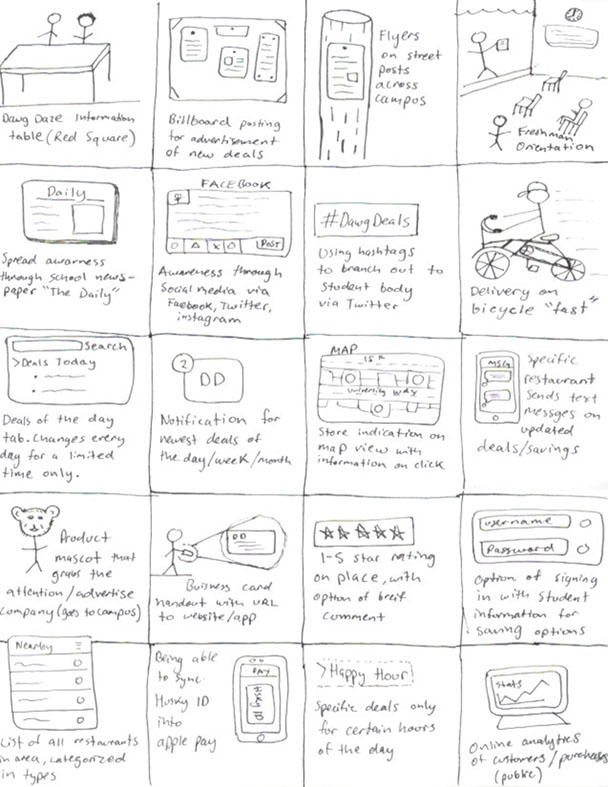 Dawg Daze Information
table (Red Square)
Billboard posting
for advertisement
of new deals
Flyers
on street
posts
across
campus
Freshman
Orientation
Daily
Spread awarness
through school news-
paper "The Daily"
FACEBOOK
POST
Awareness through
Social media via
Facebook, Twitter,
instagram
#DawgDeals
Using hashtags
to branch out to
student body
via Twitter
Delivery on
bicycle "fast"
Search
>Deals Today
Deals of the day
tab. Changes every
day for a limited
time only.
2
DD
Notification for
newest deals of
the day/week/month
MAP
University Way
Store indication on
map view with
information on click
MSG
Specific
restaurant
sends text
messges on
updated
deals/savings
Product
mascot that
grabs the
attention/advertise
company (goes to campus)
DD
Business card
handout with URL
to website/app
1-5 star rating
on place, with
option of breif
comment
username
Password
Option of signing
in with student
information for
saving options
Nearby
List of all restaurants
in area, categorized
in types
Being able
to sync
Husky ID
into
apple pay
PAY
Husky ID
>Happy Hour!
Specific deals only
for certain hours
of the day
Stats
Online analytics
of customers/purchases
(public)